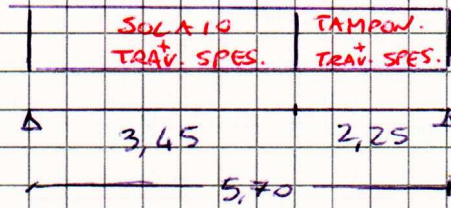 SOLAIO
+
TRAV. SPES.
TAMPON.
+
TRAV. SPES.
3,45
2,25
5,70